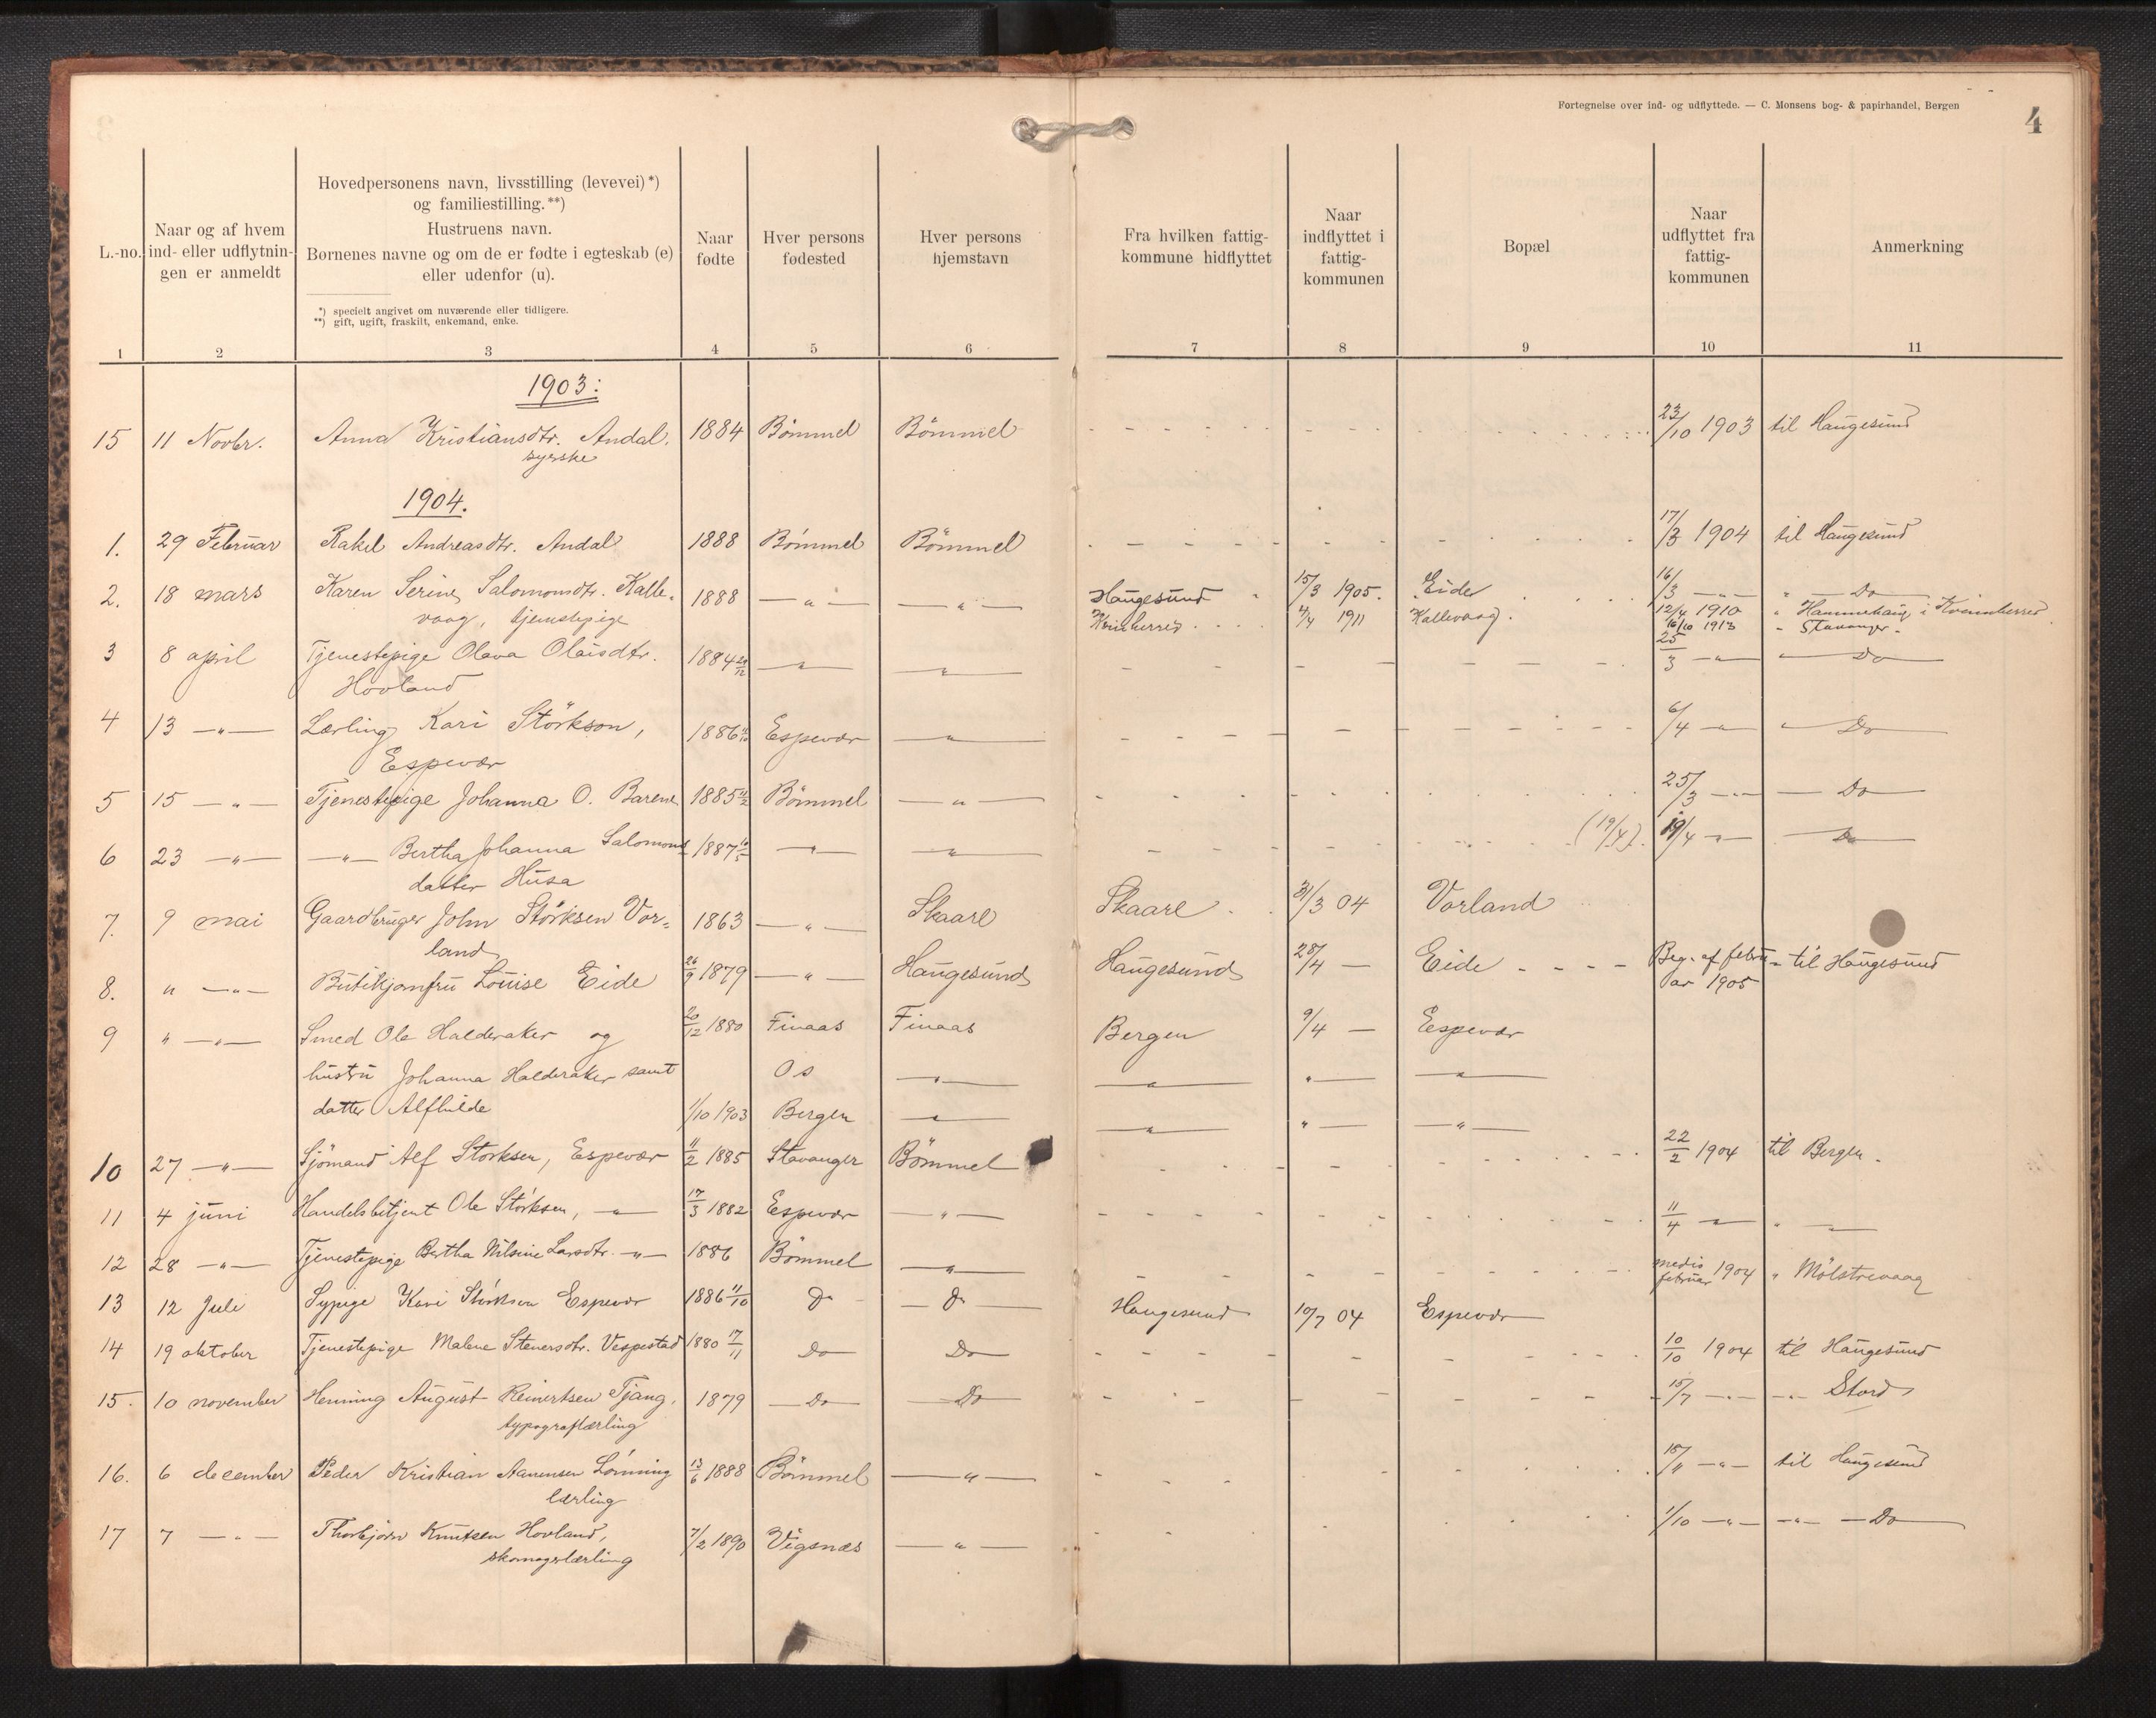 Fortegnelse over ind- og udflyttede. — C. Monsens bog- & papirhandel, Bergen
4
L.-no.
Naar og af hvem
ind- eller udflytnin-
gen er anmeldt
Hovedpersonens navn, livsstilling (levevei)*)
og familiestilling.**)
Hustruens navn.
Børnenes navne og om de er fødte i egteskab (e)
eller udenfor (u).
*) specielt angivet om nuværende eller tidligere.
**) gift, ugift, fraskilt, enkemand, enke.
Naar
fødte
Hver persons
fødested
Hver persons
hjemstavn
Fra hvilken fattig-
kommune hidflyttet
Naar
indflyttet i
fattig-
kommunen
Bopæl
Naar
udflyttet fra
fattig-
kommunen
Anmerkning
1 2 3 4 5 6 7 8 9 10 11
1903:
15 11 Novbr. Anna Kristiansdtr. Andal, 1884 Bömmel Bömmel 23/10 1903 til Haugesund
syerske
1904.
1. 29 Februar Rakel Andreasdtr. Andal 1888 Bömmel Bömmel 17/3 1904 til Haugesund
2. 18 mars Karen Serine Salomonsdtr. Kalle- 1888 — " — — " — Haugesund 15/3 1905. Eide 16/3 — " — " Do
vaag, tjenestepige Kvinherred 4/4 1911 Kallevaag. 12/4 1910 " Hammehaug i Kvinnherred
16/10 1913 " Stavanger.
3 8 april Tjenestepige Olava Olaisdtr. 1884 — " — — " — 25/3 — " — " Do
Hovland
4 13 — " — Lærling Kari Störkson, 1886 11/10 Espevær — " — 6/4 — " — " Do
Espevær
5 15 — " — Tjenestepige Johanna O. Barene 1885 Bömmel — " — 25/3 — " — — Do
6 23 — " — — " — Bertha Johanna Salomons 1887 — " — — " — (19/4). 19/4 — " — Do
datter Husa
7. 9 mai Gaardbruger John Störksen Vor- 1863 — " — Skaare Skaare 31/3 04 Vorland
land
8. " — " — Butikjomfru Louise Eide 26/9 1879 — " — Haugesund Haugesund 28/4 — Eide Beg. af febru- til Haugesund
ar 1905
9 " — " — Smed Ole Halderaker og 20/12 1880 Finaas Finaas Bergen 9/4 — Espevær
hustru Johanna Halderaker samt Os — " — — " — " — — " —
datter Alfhilde 1/10 1903 Bergen — " — — " — " — — " —
10 27 — " — Sjömand Alf Störksen, Espevær 11/2 1885 Stavanger Bömmel 22/2 1904 til Bergen.
11 4 juni Handelsbetjent Ole Störksen, — " — 17/3 1882 Espevær — " — 11/4 — " — " — " —
12 28 — " — Tjenestepige Bertha Nilsine Larsdtr. — " — 1886 Bömmel — " — medio
februar 1904 " Mölstrevaag
13 12 Juli Sypige Kari Störkson Espevær 1886 11/10 Do — Do — Haugesund 10/7 04 Espevær
14 19 oktober Tjenestepige Malene Stenersdtr. Vespestad 1880 17/11 Do Do 10/10 1904 til Haugesund
15. 10 november Henning August Reinertsen Tjang, 1879 Do Do 15/7 — " — — " — Stord
typograflærling
16. 6 december Peder Kristian Aanensen Lönning 13/6 1888 Bömmel — " — — " — til Haugesund
lærling
17 7 — " — Thorbjørn Knutsen Hovland, 7/2 1890 Vigsnæs — " — 1/10 — " — — " — Do
skomagerlærling